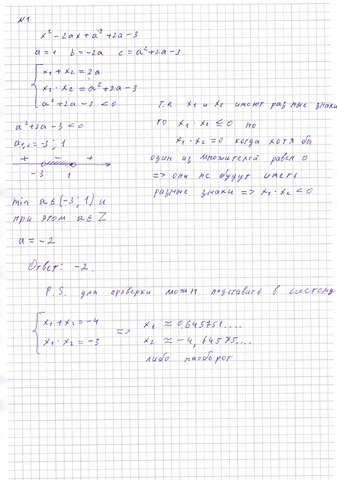 N1
x² - 2ax + a² + 2a - 3
a = 1 b = -2a c = a² + 2a - 3
x₁ + x₂ = 2a
x₁ · x₂ = a² + 2a - 3
a² + 2a - 3 < 0
т.к x₁ и x₂ имеют разные знаки
то x₁ · x₂ ≤ 0 но
x₁ · x₂ = 0 когда хотя бы
один из множителей равен 0
=> они не будут иметь
разные знаки => x₁ · x₂ < 0
a² + 2a - 3 < 0
a₁,₂ = -3; 1
+ - +
-3 1
min a ∈ (-3; 1) и
при этом a ∈ Z
a = -2
Ответ: -2.
P.S. для проверки можем подставить в систему
x₁ + x₂ = -4
x₁ · x₂ = -3
=> x₁ ≈ 0,645751....
x₂ ≈ -4,64575....
либо наоборот